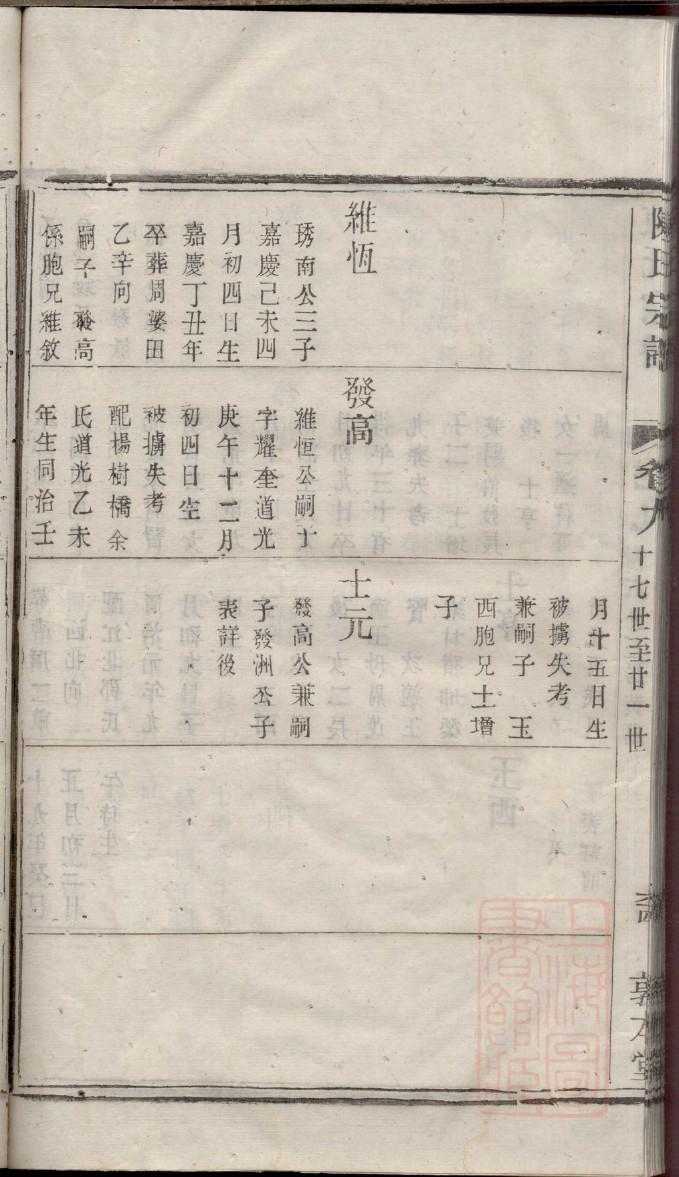 陳氏宗譜
卷九
十七世至廿一世
敦本堂
維恆
琇南公三子
嘉慶己未四
月初四日生
嘉慶丁丑年
卒葬周婆田
乙辛向
嗣子發高
係胞兄維敘
發高
維恆公嗣子
字耀奎道光
庚午十二月
初四日生
被擄失考
配楊樹橋余
氏道光乙未
年生同治壬
月十五日生
被擄失考
兼嗣子玉
西胞兄士增
子
士元
發高公兼嗣
子發洲公子
表詳後
上海圖書館藏